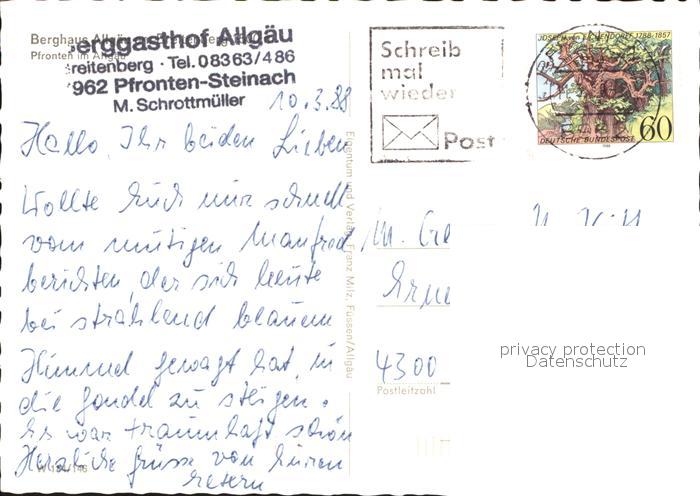 Berghaus Allgäu
Pfronten im Allgäu
Berggasthof Allgäu
Breitenberg · Tel. 08363/486
8962 Pfronten-Steinach
M. Schrottmüller
10.3.88
Hallo, Ihr beiden Lieben
Wollte Euch nur schnell
vom mutigen Manfred
berichten, der sich heute
bei strahlend blauem
Himmel gewagt hat, in
die Gondel zu steigen.
Es war traumhaft schön
Herzliche Grüsse von Euren
Eigentum und Verlag Franz Milz, Füssen/Allgäu
Schreib
mal
wieder
Post
JOSEPH von EICHENDORFF 1788-1857
60
DEUTSCHE BUNDESPOST
4300
Postleitzahl
privacy protection
Datenschutz